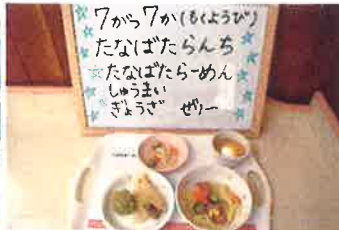 7がつ7か(もくようび)
たなばたらんち
たなばたらーめん
しゅうまい
ぎょうざ ぜりー